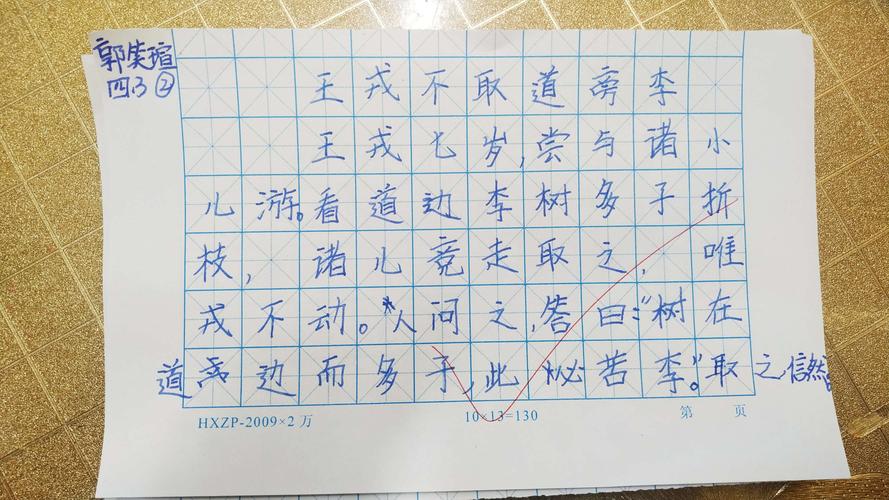 郭奕瑄
四.3 ②
王戎不取道旁李
王戎七岁,尝与诸小
儿游。看道边李树多子折
枝,诸儿竞走取之,唯
戎不动。人问之,答曰:“树在
道边而多子,此必苦李。”取之,信然。
HXZP-2009×2万
10×13=130
第 页